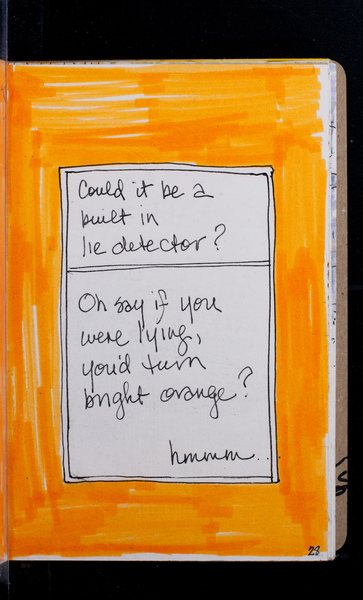 Could it be a
built in
lie detector?
Oh say if you
were lying,
you'd turn
bright orange?
hmmm...
23